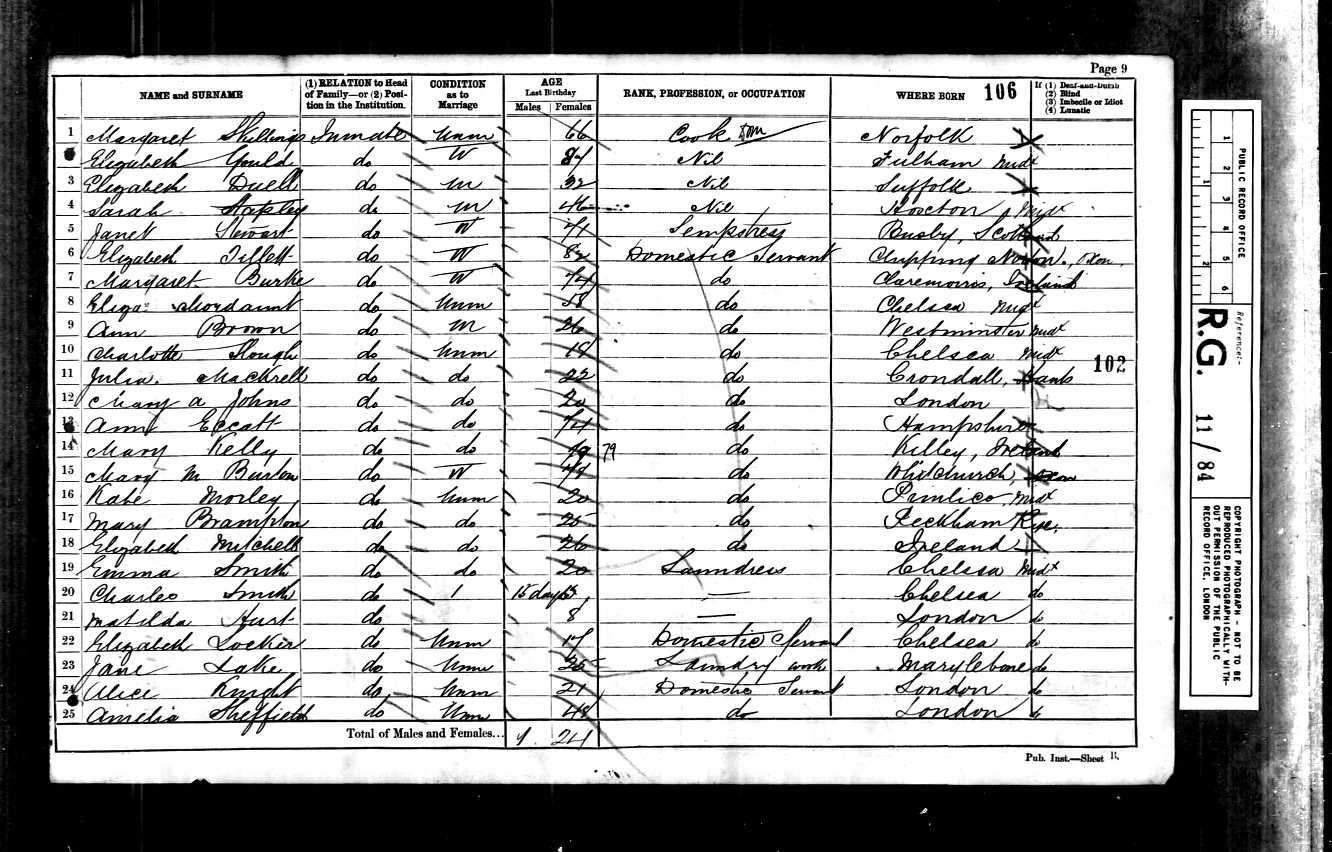 Page 9
NAME and SURNAME (1) RELATION to Head of Family—or (2) Position in the Institution. CONDITION as to Marriage AGE Last Birthday Males Females RANK, PROFESSION, or OCCUPATION WHERE BORN 106 If (1) Deaf-and-Dumb (2) Blind (3) Imbecile or Idiot (4) Lunatic
1 Margaret Inmate Unm 66 Cook Dom Norfolk
Elizabeth Gould do W 84 Nil Fulham Midx
3 Elizabeth Duell do M 32 Nil Suffolk
4 Sarah Stapley do M 46 Nil Hoxton Midx
5 Janet Stewart do W 71 Sempstress Busby, Scotland
6 Elizabeth Tillett do W 82 Domestic Servant Chipping Norton, Oxon.
7 Margaret Burke do W 74 do Claremorris, Ireland
8 Eliza Mordaunt do Unm 58 do Chelsea Midx
9 Ann Brown do M 26 do Westminster Midx
10 Charlotte Slough do Unm do Chelsea Midx
102
11 Julia Mackrell do do 22 do Crondall, Hants
12 Mary a Johns do do 20 do London
13 Ann Eccatt do do 74 do Hampshire
14 Mary Kelly do do 79 do Killey, Ireland
15 Mary M Burton do W do Whitchurch, Oxon
16 Kate Morley do Unm 20 do Pimlico, Midx
17 Mary Brampton do do 25 do Peckham Rye,
18 Elizabeth Mitchell do do 26 do Ireland
19 Emma Smith do do 20 Laundress Chelsea Midx
20 Charles Smith do 1 15 days — Chelsea do
21 Matilda Hurt do 8 — London do
22 Elizabeth Locker do Unm 17 Domestic Servant Chelsea do
23 Jane Lake do Unm 25 Laundry work Marylebone do
24 Alice Knight do Unm 21 Domestic Servant London do
25 Amelia Sheffield do Unm 48 do London do
Total of Males and Females... 1 24
Pub. Inst.—Sheet B.
PUBLIC RECORD OFFICE
1 2 3 4 5 6
1 2
Reference:-
R.G. 11 / 84
COPYRIGHT PHOTOGRAPH - NOT TO BE
REPRODUCED PHOTOGRAPHICALLY WITH-
OUT PERMISSION OF THE PUBLIC
RECORD OFFICE, LONDON